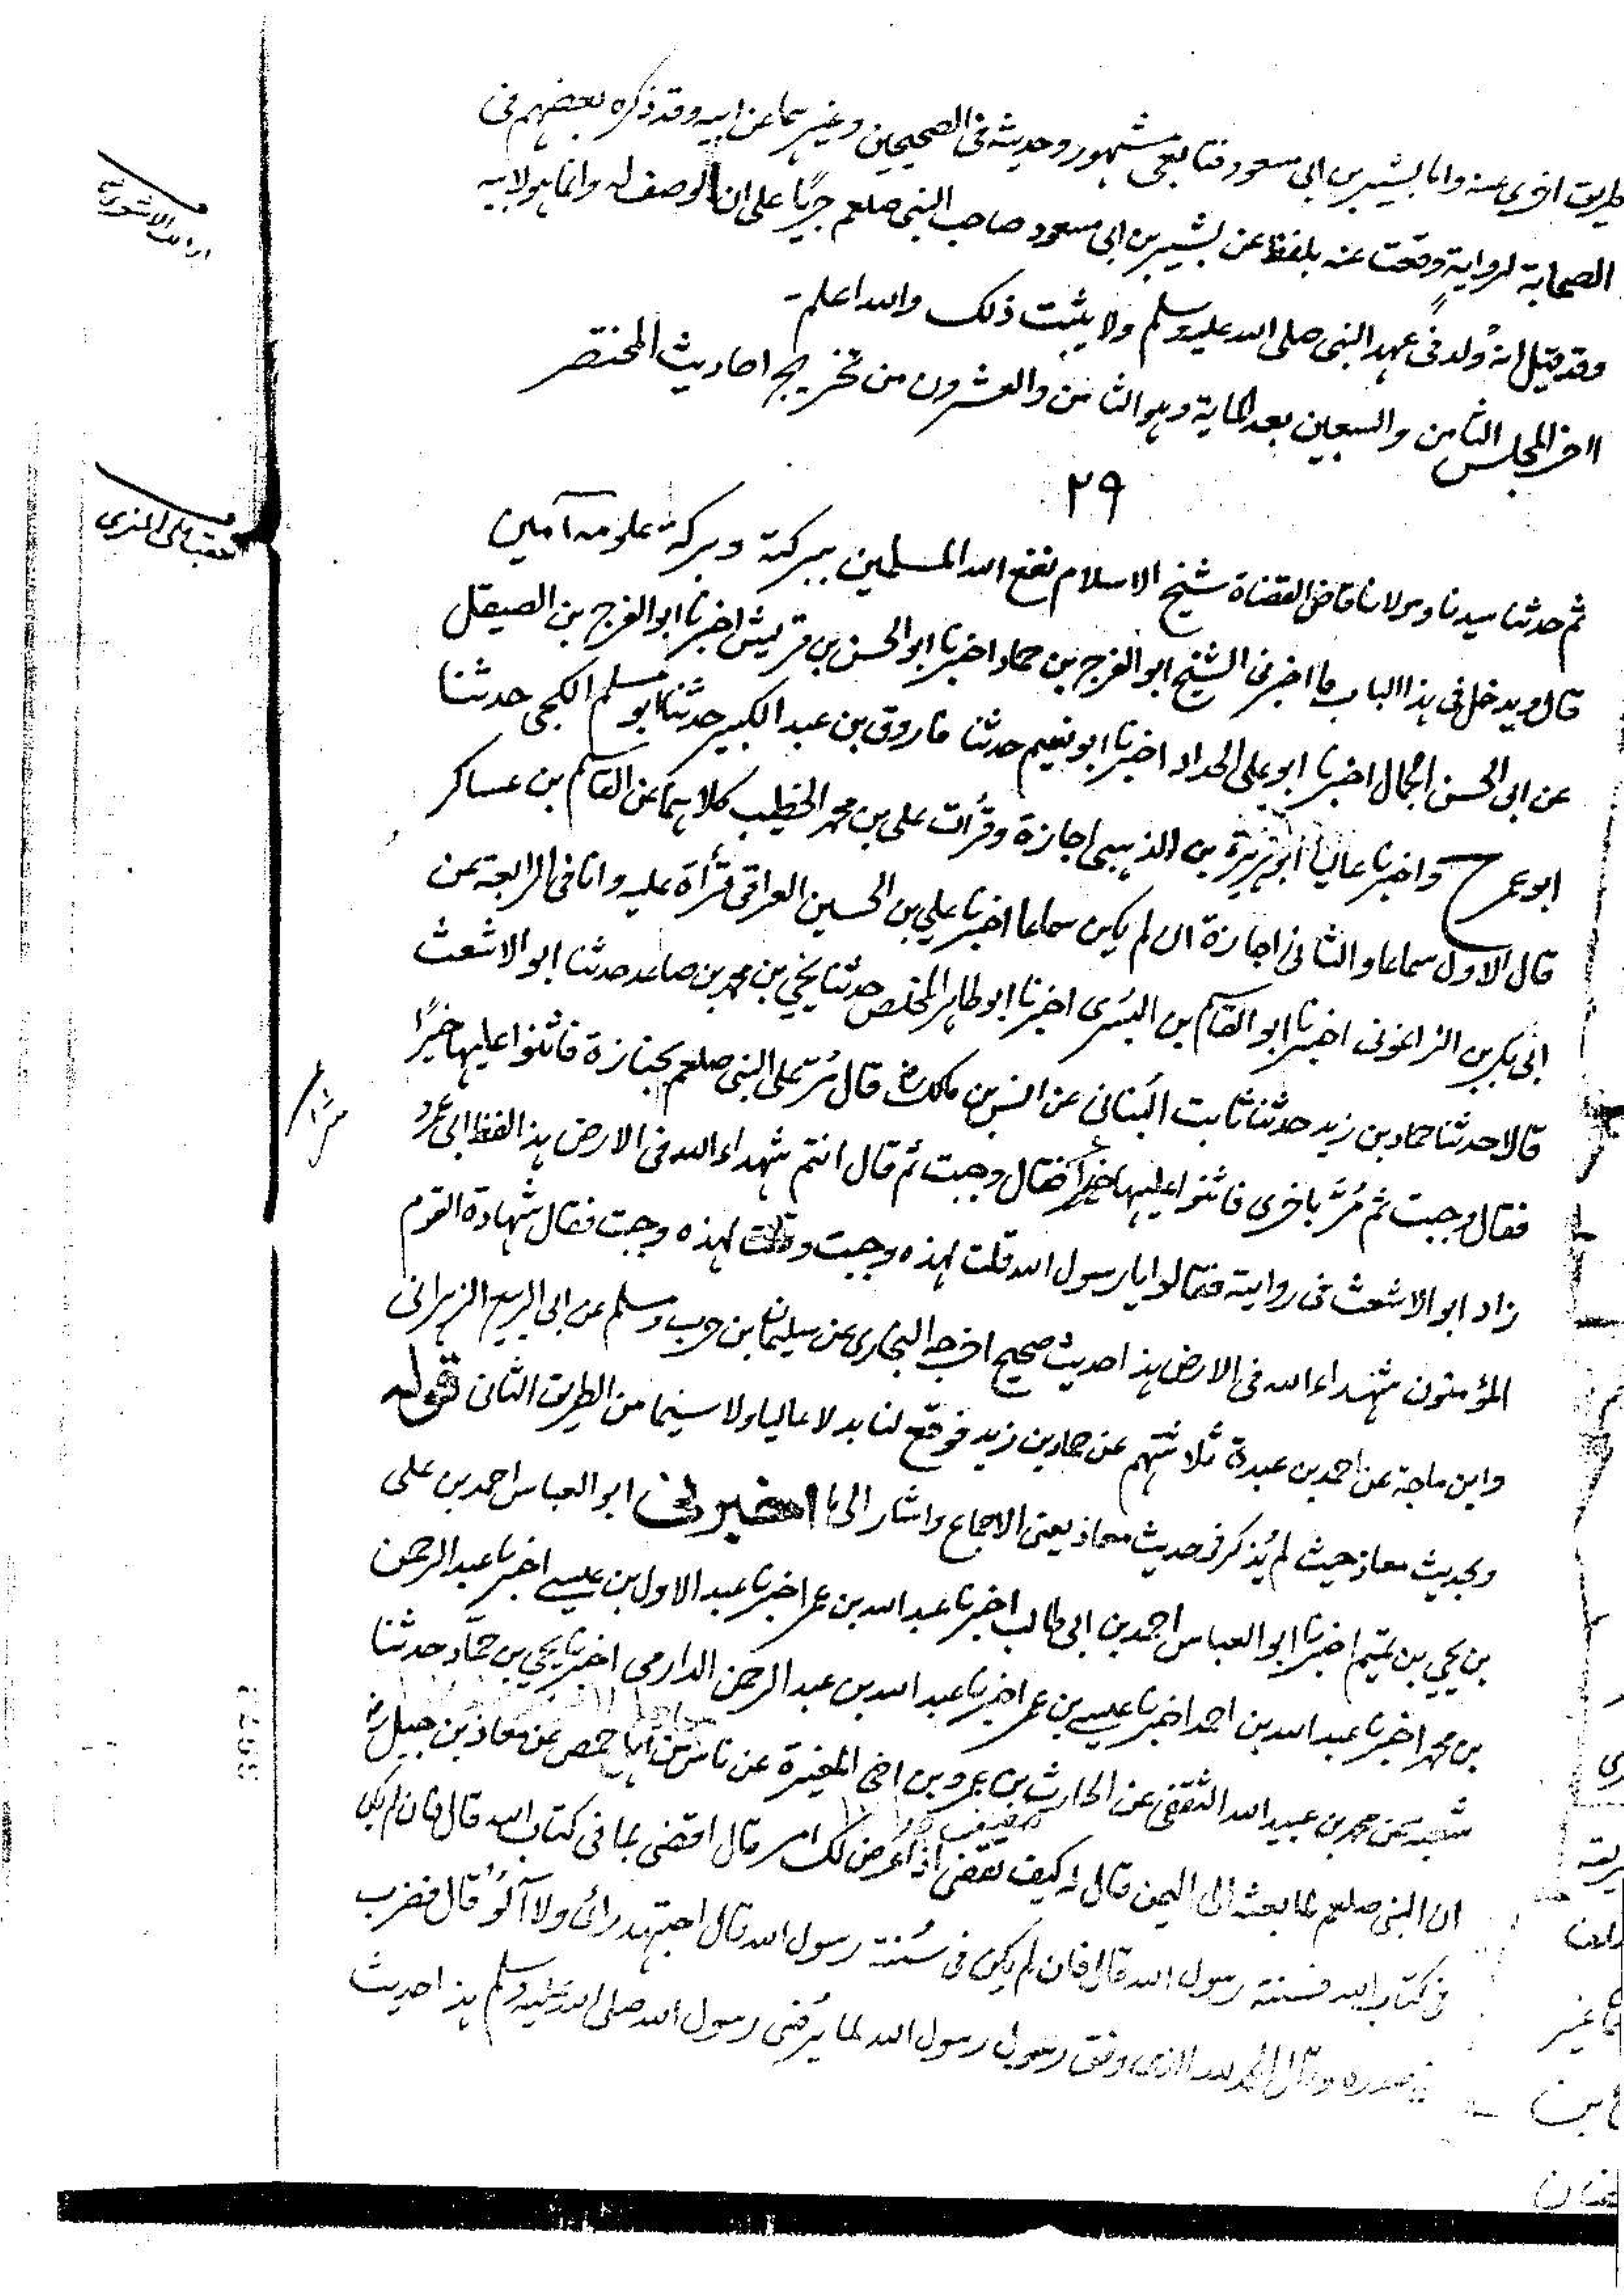 طريق اخرى عنه واما بشير بن ابى مسعود فتابعى مشهور وحديثه فى الصحيحين وغيرهما عن ابيه وقد ذكره بعضهم فى
الصحابة لرواية وقعت عنه بلفظ عن بشير بن ابى مسعود صاحب النبى صلعم جريًا على ان الوصف له وانما هو لابيه
وقد قيل انه وُلد فى عهد النبى صلى الله عليه وسلم ولا يثبت ذلك والله اعلم -
اخر المجلس الثامن والسبعين بعد الماية وهو الثامن والعشرون من تخريج احاديث المختصر
٢٩
ثم حدثنا سيدنا ومولانا قاضى القضاة شيخ الاسلام نفع الله المسلمين ببركته وبركة علومه آمين
قال ويدخل فى هذا الباب ما اخبرنى الشيخ ابو الفرج بن حماد اخبرنا ابو الحسن بن قريش اخبرنا ابو الفرج بن الصيقل
عن ابى الحسن الجمال اخبرنا ابو على الحداد اخبرنا ابو نعيم حدثنا فاروق بن عبد الكبير حدثنا ابو مسلم الكجى حدثنا
ابو عمر ح واخبرنا عاليا ابو هريرة بن الذهبى اجازة وقرأت على بن محمد الخطيب كلاهما عن القاسم بن عساكر
قال الاول سماعا والثانى اجازة ان لم يكن سماعا اخبرنا على بن الحسين العراقى قرأة عليه وانا فى الرابعة عن
ابى بكر بن الزاغونى اخبرنا ابو القاسم بن البُسرى اخبرنا ابو طاهر المخلص حدثنا يحيى بن محمد بن صاعد حدثنا ابو الاشعث
قالا حدثنا حماد بن زيد حدثنا ثابت البنانى عن انس بن مالك رض قال مُرّ على النبى صلعم بجنازة فاثنوا عليها خيرًا
فقال وجبت ثم مُرَّ باخرى فاثنوا عليها فقال وجبت ثم قال انتم شهداء الله فى الارض هذا لفظ ابى عمر
زاد ابو الاشعث فى رواية فقالوا يا رسول الله قلت لهذه وجبت وقلت لهذه وجبت فقال شهادة القوم
المؤمنون شهداء الله فى الارض هذا حديث صحيح اخرجه البخارى عن سليمان بن حرب ومسلم عن ابى الربيع الزهرانى
وابن ماجة عن احمد بن عبدة ثلاثتهم عن حماد بن زيد فوقع لنا بدلا عاليا ولا سيما من الطريق الثانى قوله
وبحديث معاذ حيث لم يُذكر فى حديث معاذ يعنى الاجماع واشار الى ما اخبرنى ابو العباس احمد بن على
بن يحيى بن تميم اخبرنا ابو العباس احمد بن ابى طالب اخبرنا عبد الله بن عمر اخبرنا عبد الاول بن عيسى اخبرنا عبد الرحمن
بن محمد اخبرنا عبد الله بن احمد اخبرنا عيسى بن عمر اخبرنا عبد الله بن عبد الرحمن الدارمى اخبرنا يحيى بن حمّاد حدثنا
شعبة عن محمد بن عبيد الله الثقفى عن الحارث بن عمرو بن اخى المغيرة عن ناس من اهل حمص عن معاذ بن جبل رض
ان النبى صلعم لما بعثه الى اليمن قال له كيف تقضى اذا عرض لك امر قال اقضى بما فى كتاب الله قال فان لم يكن
فى كتاب الله فسنة رسول الله قال فان لم يكن فى سُنة رسول الله قال اجتهد رائى ولا آلوُ قال فضرب
صدره وقال الحمد لله الذى وفق رسول رسول الله لما يُرضى رسول الله صلى الله عليه وسلم هذا حديث